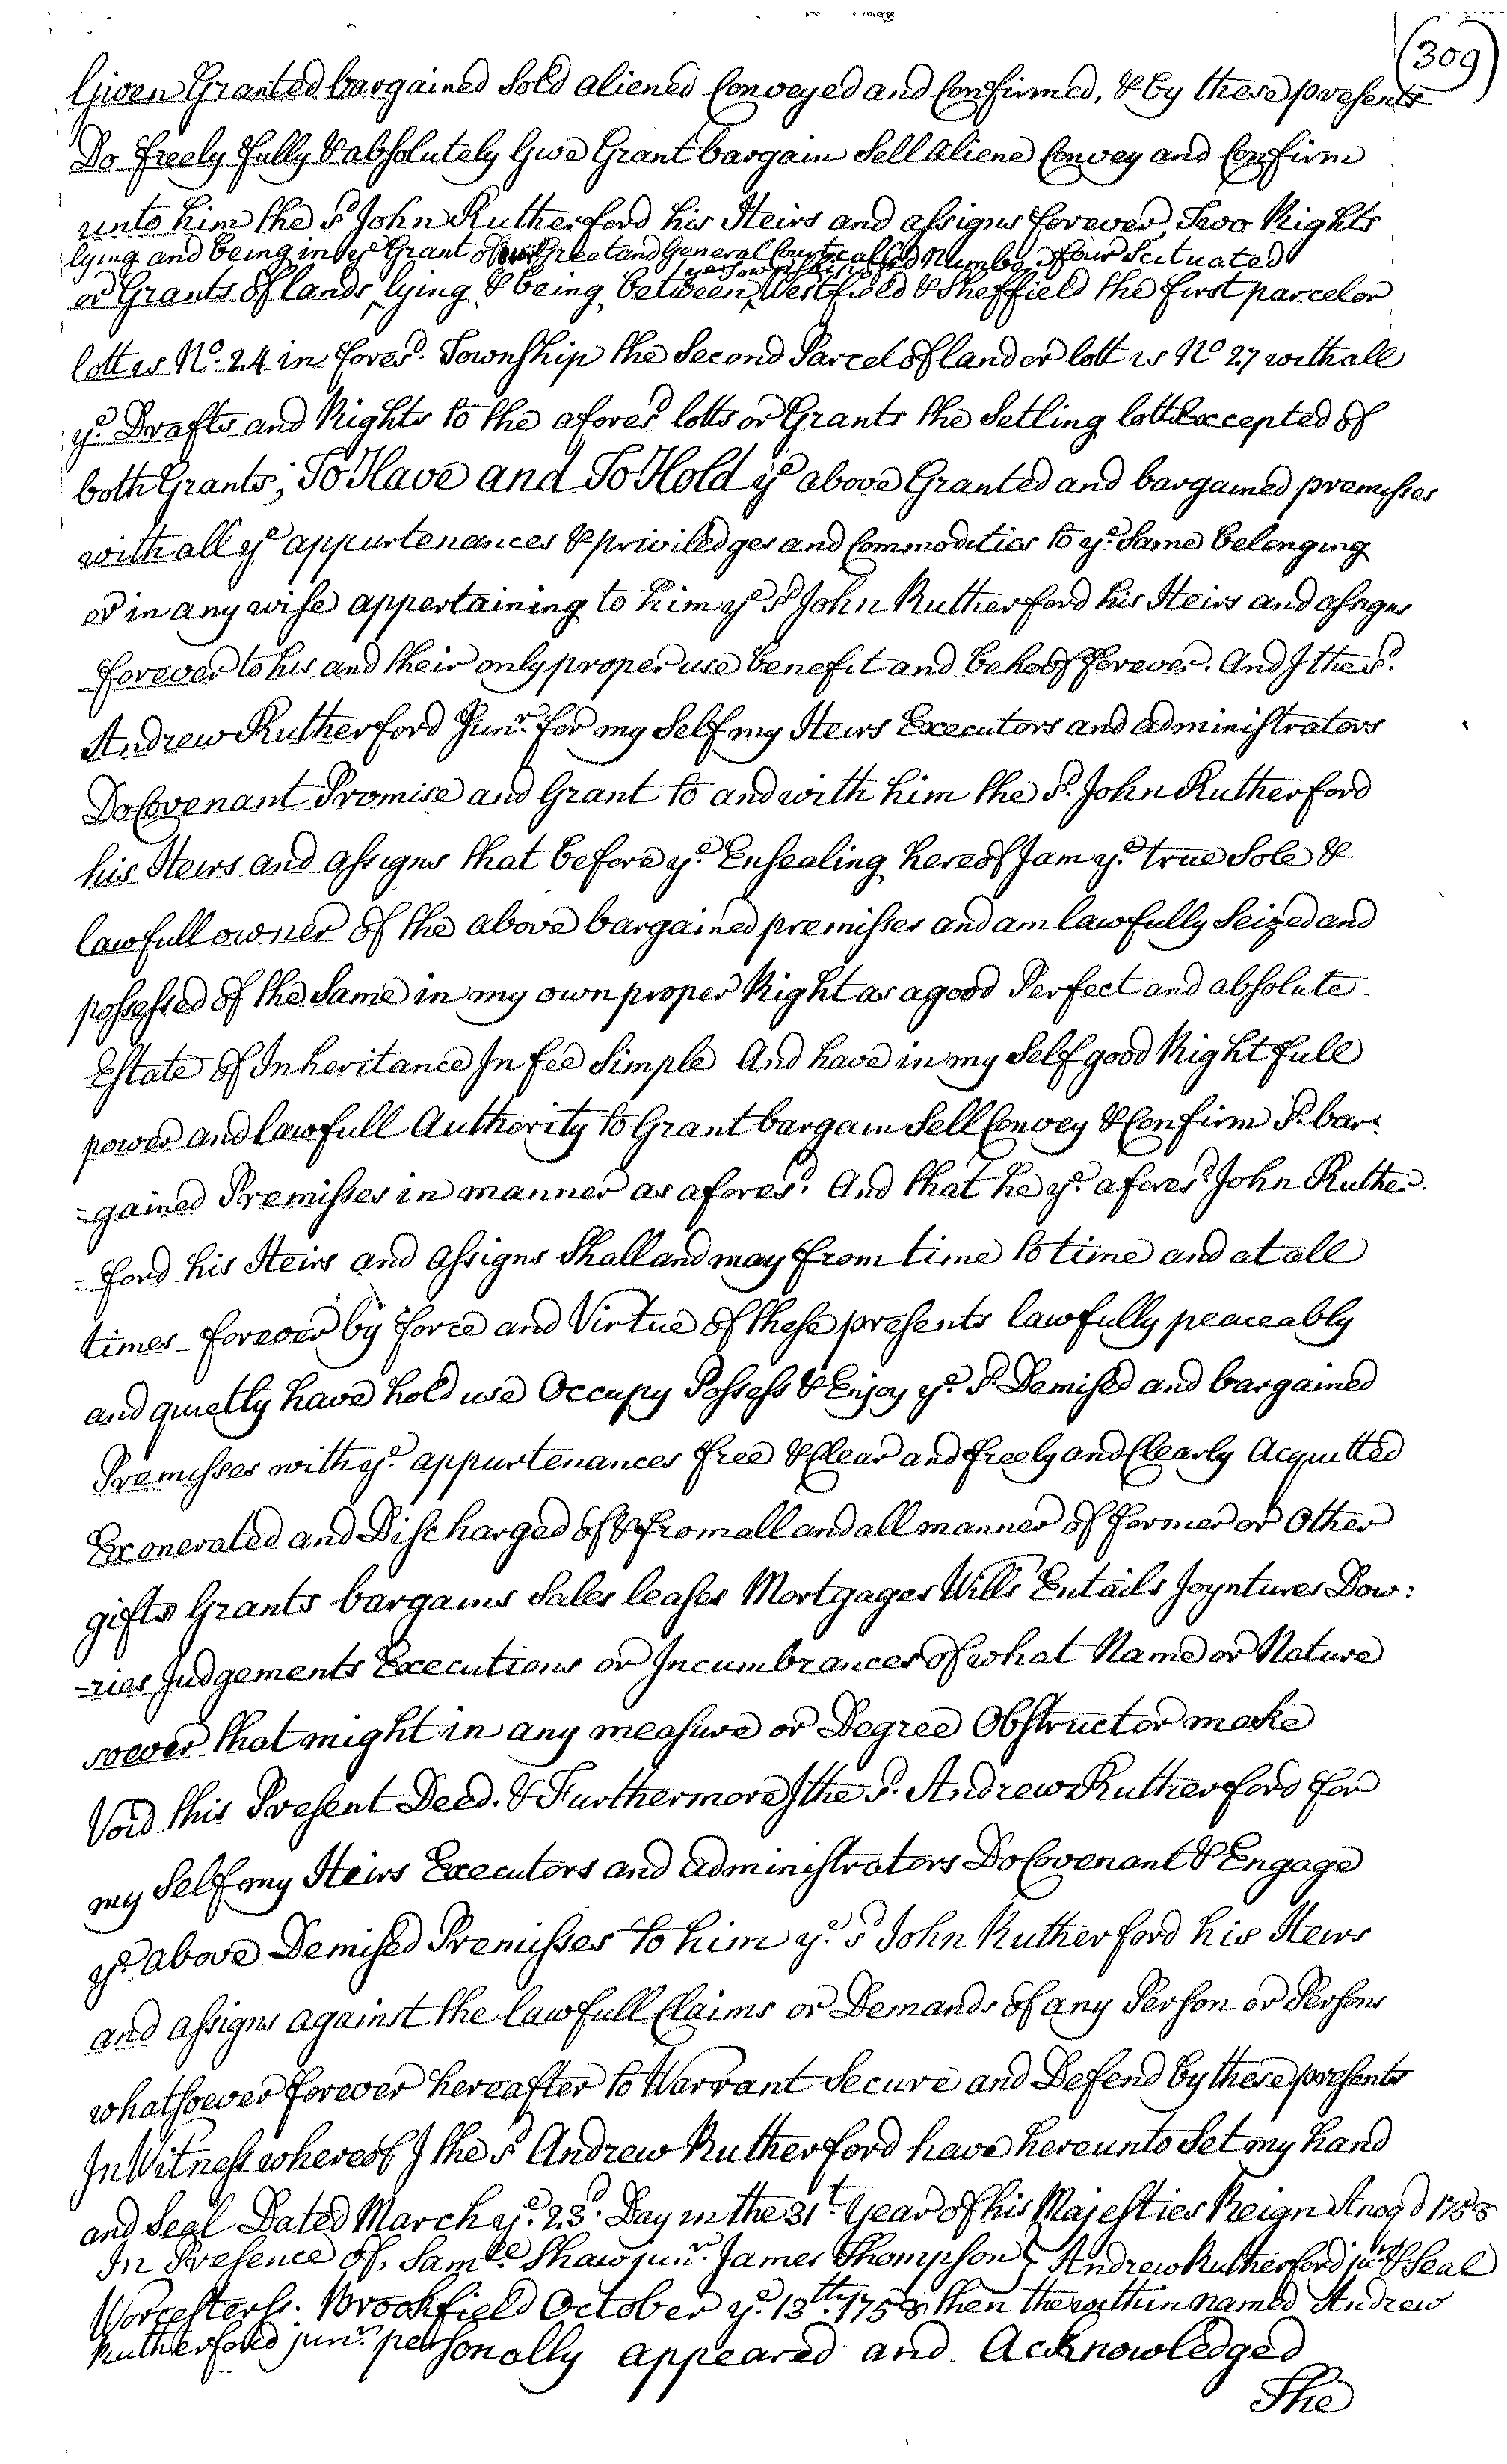 (309)
Given Granted bargained Sold aliened Conveyed and Confirmed, & by these presents
Do freely fully & absolutely Give Grant bargain Sell aliene Convey and Confirm
unto him the sd John Rutherford his Heirs and assigns forever, Two Rights
lying and being in ye Grant of ye Great and General Court called Number four Scituated
ye Townships of
or Grants of lands, lying & being between Westfield & Sheffield the first parcel or
lott is No. 24 in foresd. Township the Second Parcel of land or lott is No 27 with all
ye. Drafts and Rights to the aforesd lotts or Grants the Setling lott Excepted of
both Grants; To Have and To Hold ye above Granted and bargained premisses
with all ye appurtenances & priviledges and Commodities to ye. Same belonging
or in any wise appertaining to him ye sd John Rutherford his Heirs and assigns
forever to his and their only proper use benefit and behoof forever. And I the sd.
Andrew Rutherford Junr. for my Self my Heirs Executors and administrators
Do Covenant Promise and Grant to and with him the sd. John Rutherford
his Heirs and assigns that before ye. Ensealing hereof I am ye. true Sole &
lawfull owner of the above bargained premisses and am lawfully Seized and
possessed of the Same in my own proper Right as a good Perfect and absolute
Estate of Inheritance In fee Simple And have in my Self good Right full
power and lawfull Authority to Grant bargain Sell Convey & Confirm sd. bar-
-gained Premisses in manner as aforesd. And that he ye. aforesd. John Ruther-
-ford his Heirs and assigns Shall and may from time to time and at all
times forever by force and Virtue of these presents lawfully peaceably
and quietly have hold use Occupy Possess & Enjoy ye. sd. Demised and bargained
Premisses with ye. appurtenances free & Clear and freely and Clearly Acquitted
Exonerated and Discharged of & from all and all manner of former or Other
gifts Grants bargains Sales leases Mortgages Wills Entails Joyntures Dow:
-ries Judgements Executions or Incumbrances of what Name or Nature
soever that might in any measure or Degree Obstruct or make
Void this Present Deed. & Furthermore I the sd. Andrew Rutherford for
my Self my Heirs Executors and administrators Do Covenant & Engage
ye. above Demised Premisses to him ye. sd John Rutherford his Heirs
and assigns against the lawfull Claims or Demands of any Person or Persons
whatsoever forever hereafter to Warrant Secure and Defend by these presents
In Witness whereof I the sd Andrew Rutherford have hereunto Set my hand
and Seal Dated March ye. 23d. Day in the 31t Year of his Majesties Reign Anoqd 1758
In Presence of, Samll Shaw junr. James Thompson } Andrew Rutherford jur. & Seal
Worcester ss. Brookfield October ye. 13th. 1758 then the within named Andrew
Rutherford junr. personally appeared and Acknowledged
The